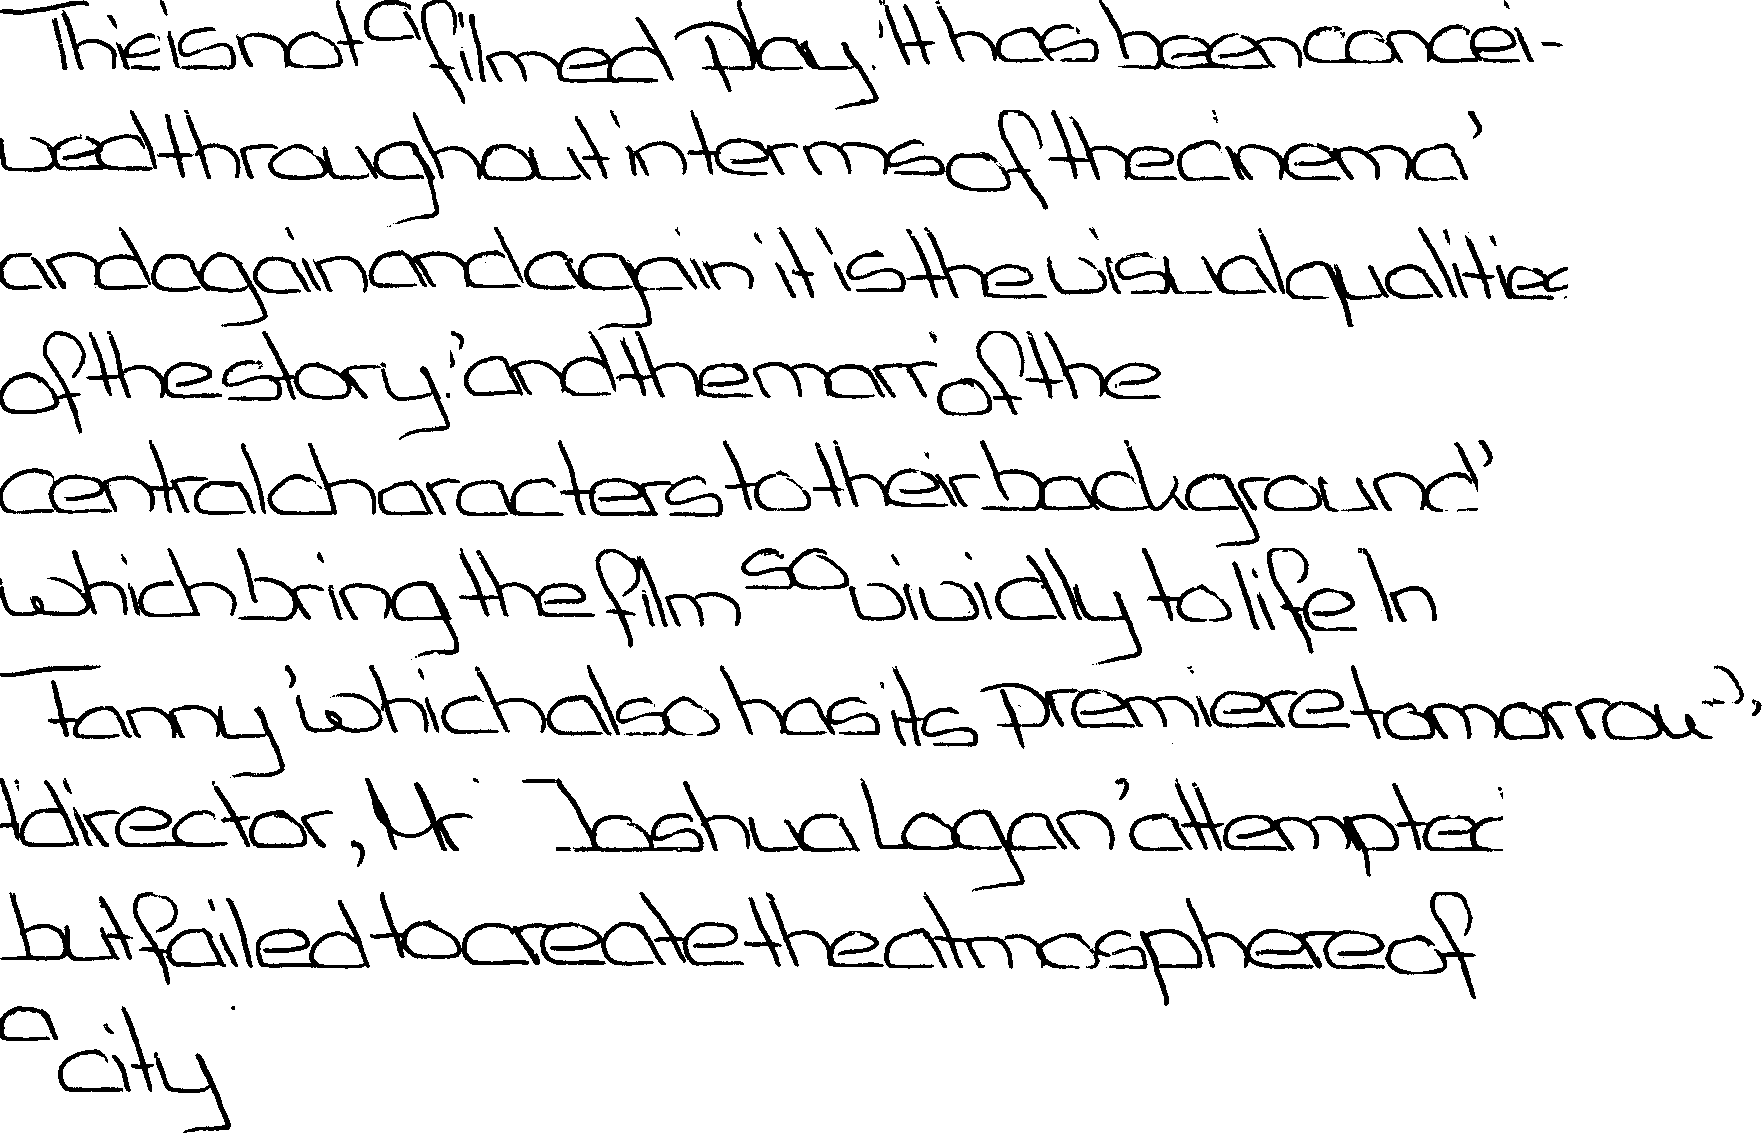 This is not a filmed play. It has been concei-
ved throughout in terms of the cinema,
and again and again it is the visual qualities
of the story, and the marr of the
central characters to their background,
which bring the film so vividly to life. In
Fanny, which also has its premiere tomorrow,
director, Mr Joshua Logan, attempted
but failed to create the atmosphere of
a city